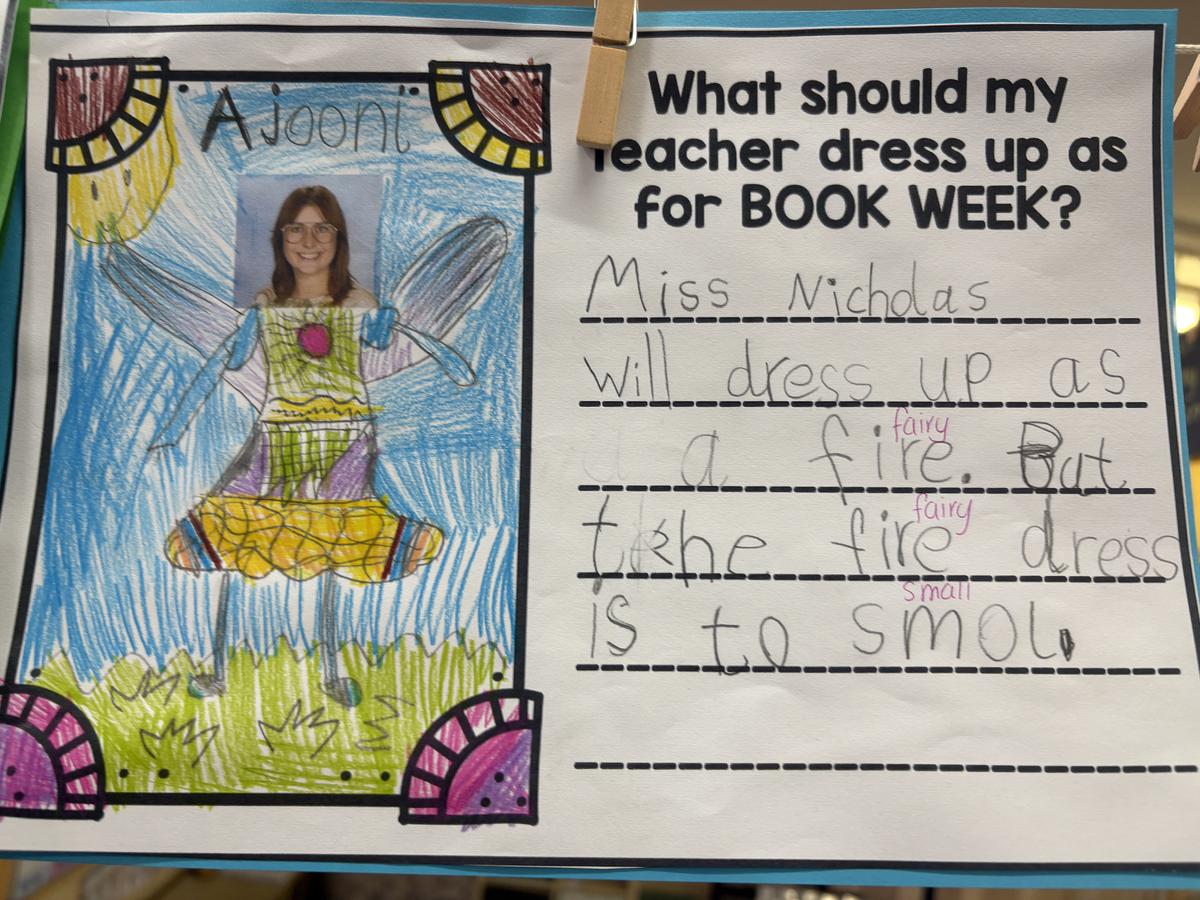 Ajooni
What should my
Teacher dress up as
for BOOK WEEK?
Miss Nicholas
will dress up as
fairy
a fire. But
fairy
the fire dress
small
is to smol.